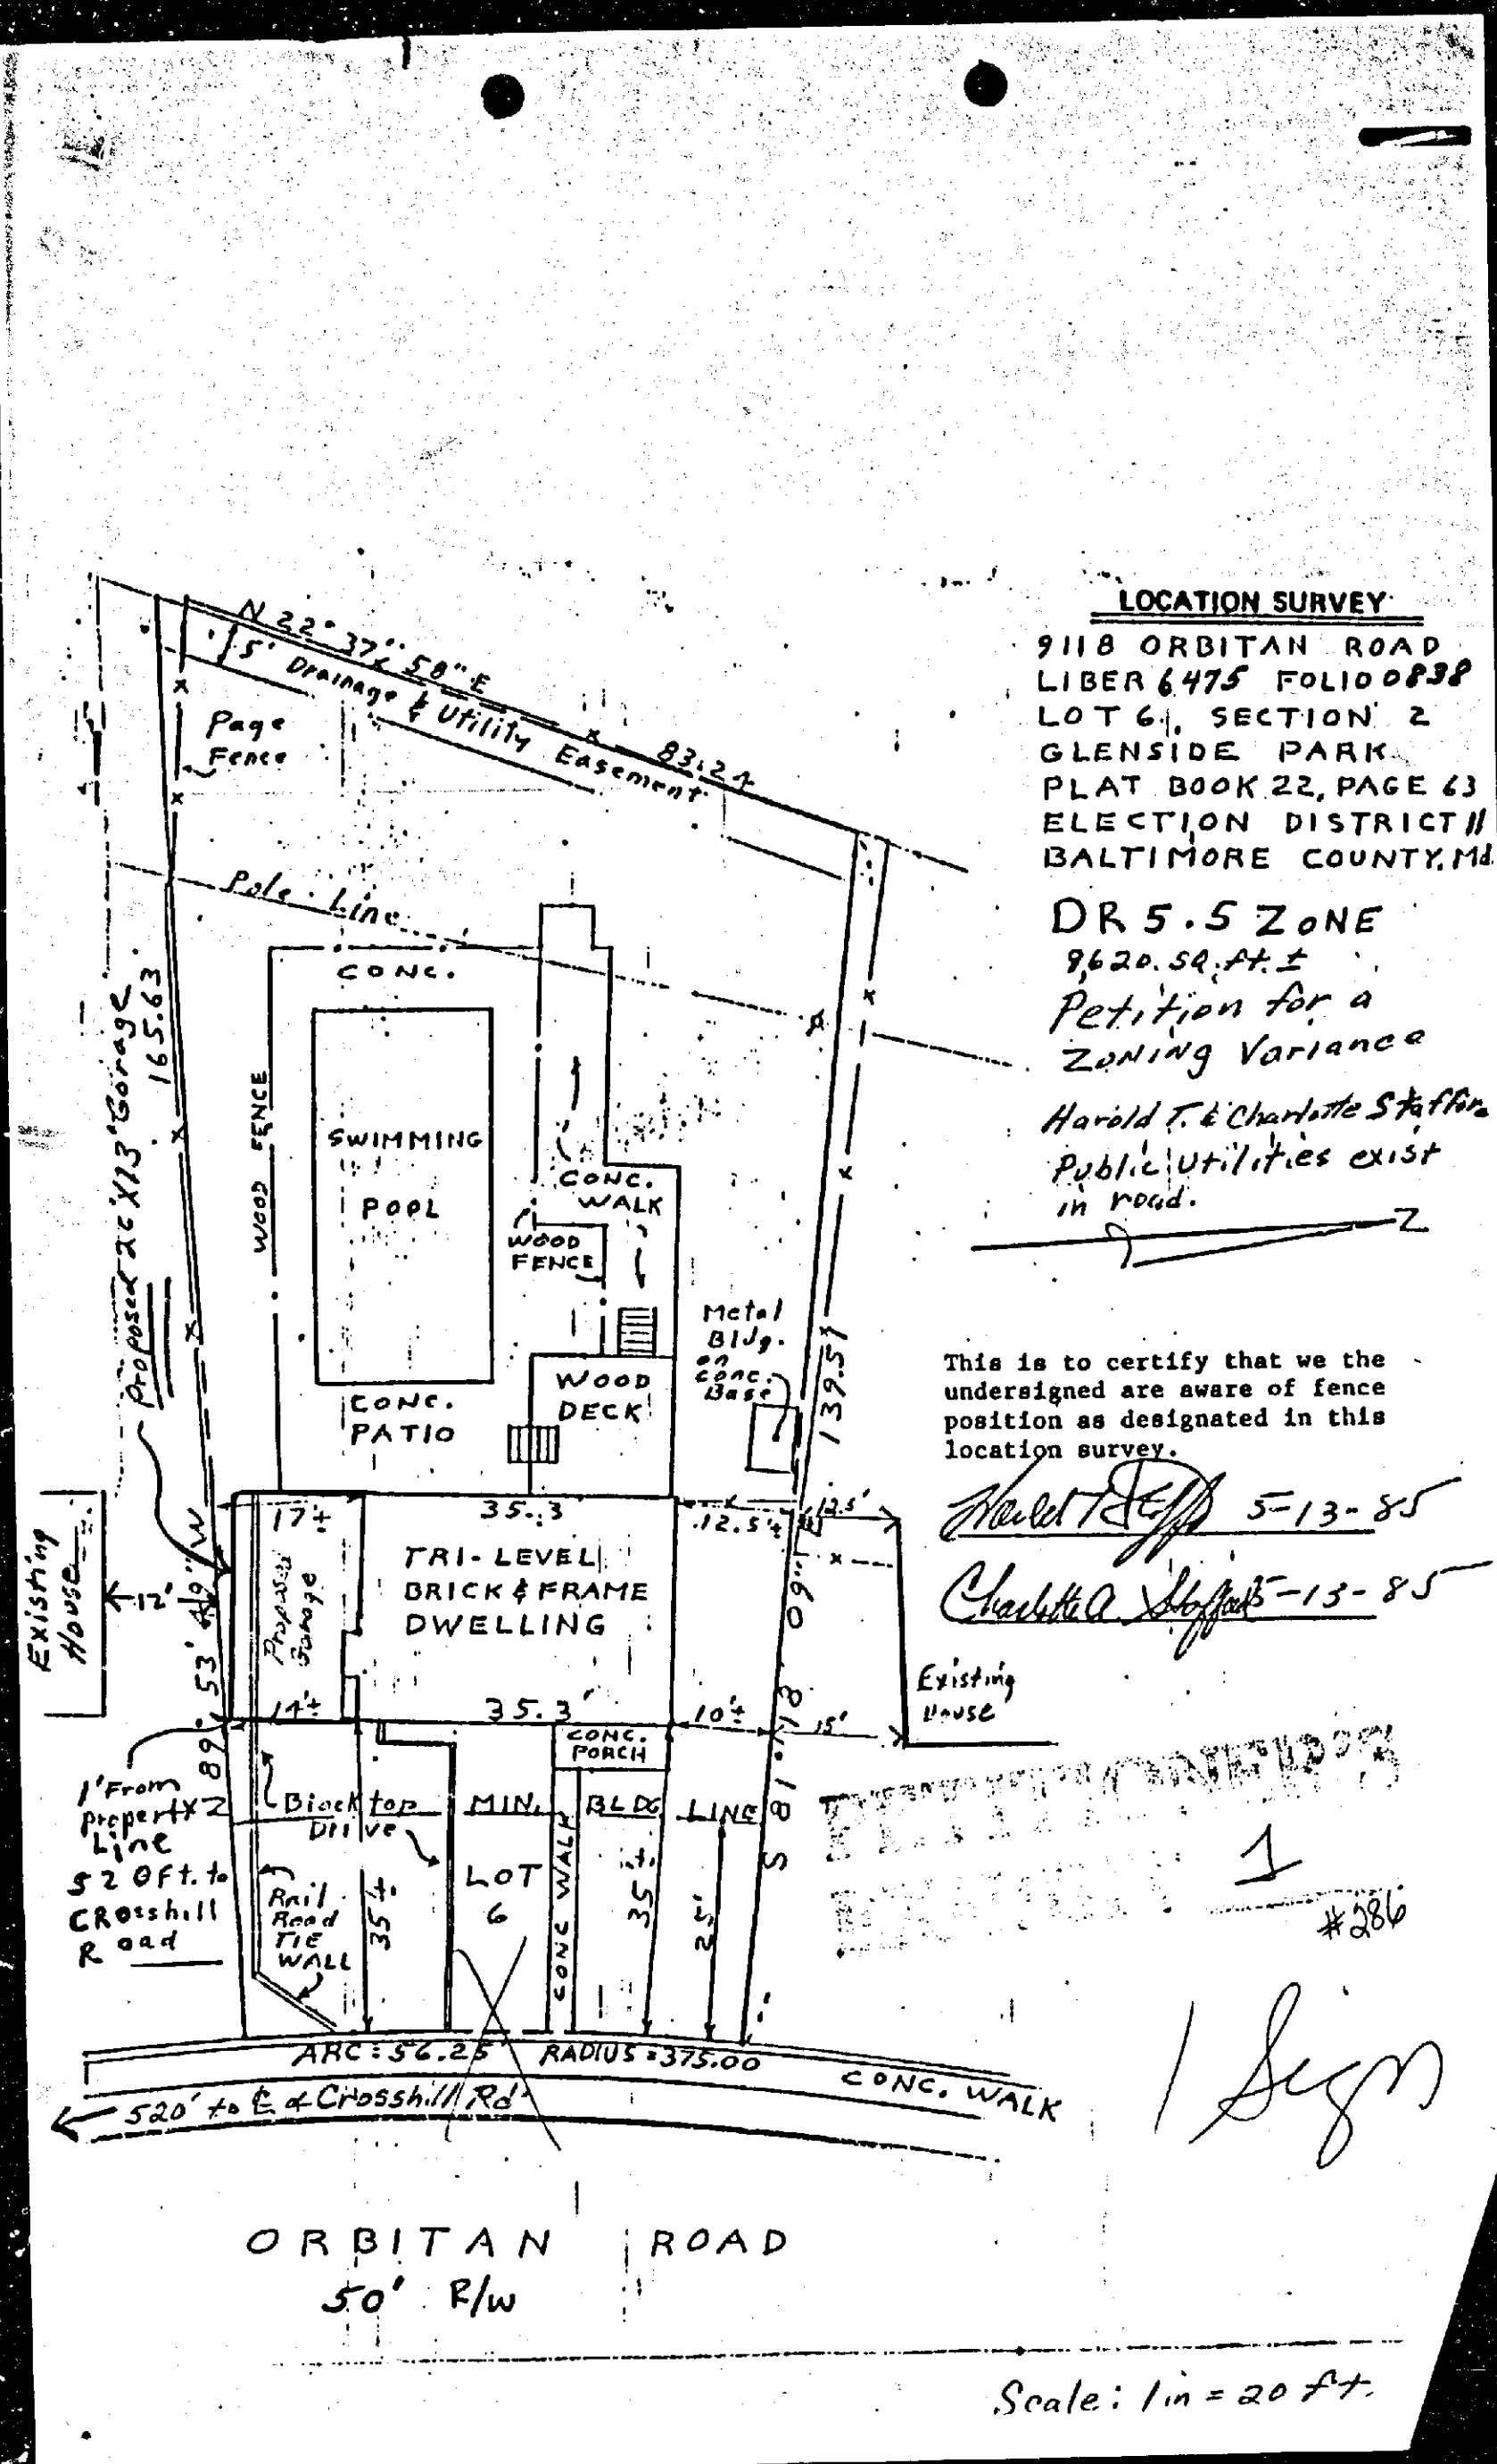 LOCATION SURVEY
9118 ORBITAN ROAD
LIBER 6475 FOLIO 0838
LOT 6, SECTION 2
GLENSIDE PARK
PLAT BOOK 22, PAGE 63
ELECTION DISTRICT 11
BALTIMORE COUNTY, Md.
DR 5.5 ZONE
9,620. SQ. Ft. ±
Petition for a
ZONING Variance
Harold T. & Charlotte
Public Utilities exist
in road.
This is to certify that we the
undersigned are aware of fence
position as designated in this
location survey.
5-13-85
Charlotte A. 5-13-85
N 22° 37' 58" E
83.24
5' Drainage & Utility Easement
Page
Fence
Pole Line
CONC.
165.63
Proposed X13' Garage
WOOD FENCE
SWIMMING
POOL
CONC.
WALK
WOOD
FENCE
Metal
Bldg.
on
Conc.
Base
139.51
WOOD
DECK
CONC.
PATIO
17±
35.3
12.5'±
12.5'
Existing
House
12'
Proposed
Garage
TRI-LEVEL
BRICK & FRAME
DWELLING
89° 53' 49" W
S 81° 18' 09" E
Existing
House
14'±
35.3'
10'±
15'
CONC.
PORCH
1' From
Property
Line
520ft. to
CROsshill
Road
Blacktop
Drive
MIN. BLDG. LINE
LOT
6
CONC WALK
35±
35±
25'
Rail
Road
TIE
WALL
ARC = 56.25' RADIUS = 375.00
CONC. WALK
520' to ℄ of Crosshill Rd
1
#286
1 Sign
ORBITAN ROAD
50' R/W
Scale: 1 in = 20 ft.